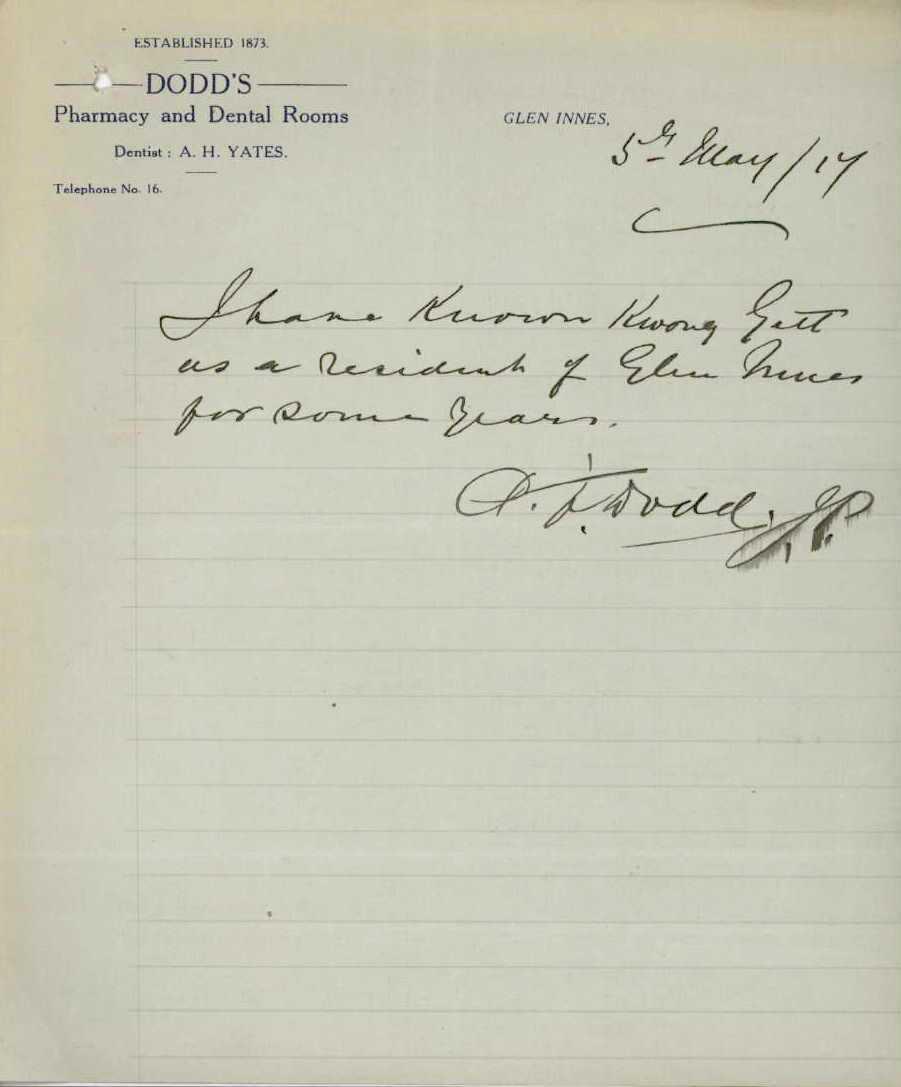 ESTABLISHED 1873.
DODD'S
Pharmacy and Dental Rooms
Dentist: A. H. YATES.
Telephone No. 16.
GLEN INNES,
5th May/17
I have known Kwong Gett
as a resident of Glen Innes
for some years.
Dodd, J.P.